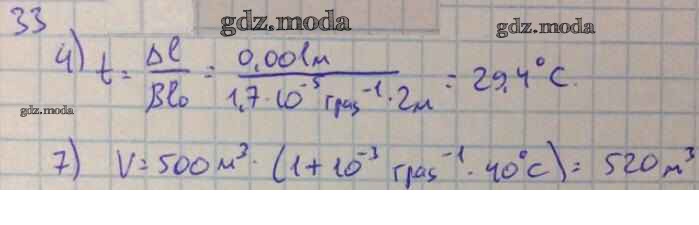 33
gdz.moda
gdz.moda
4) t = Δl / Bl₀ = 0,001м / 1,7·10⁻⁵ град⁻¹·2м = 29,4°C.
gdz.moda
7) V = 500 м³·(1+10⁻³ град⁻¹·40°C) = 520 м³